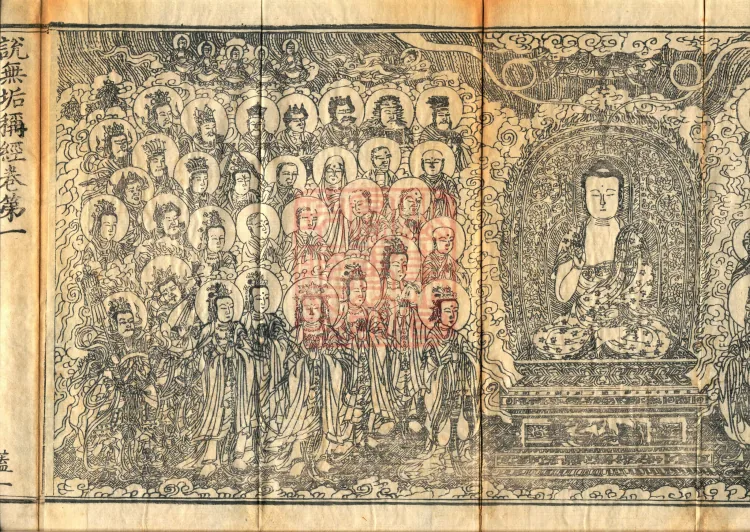 說無垢稱經卷第一
蓋一